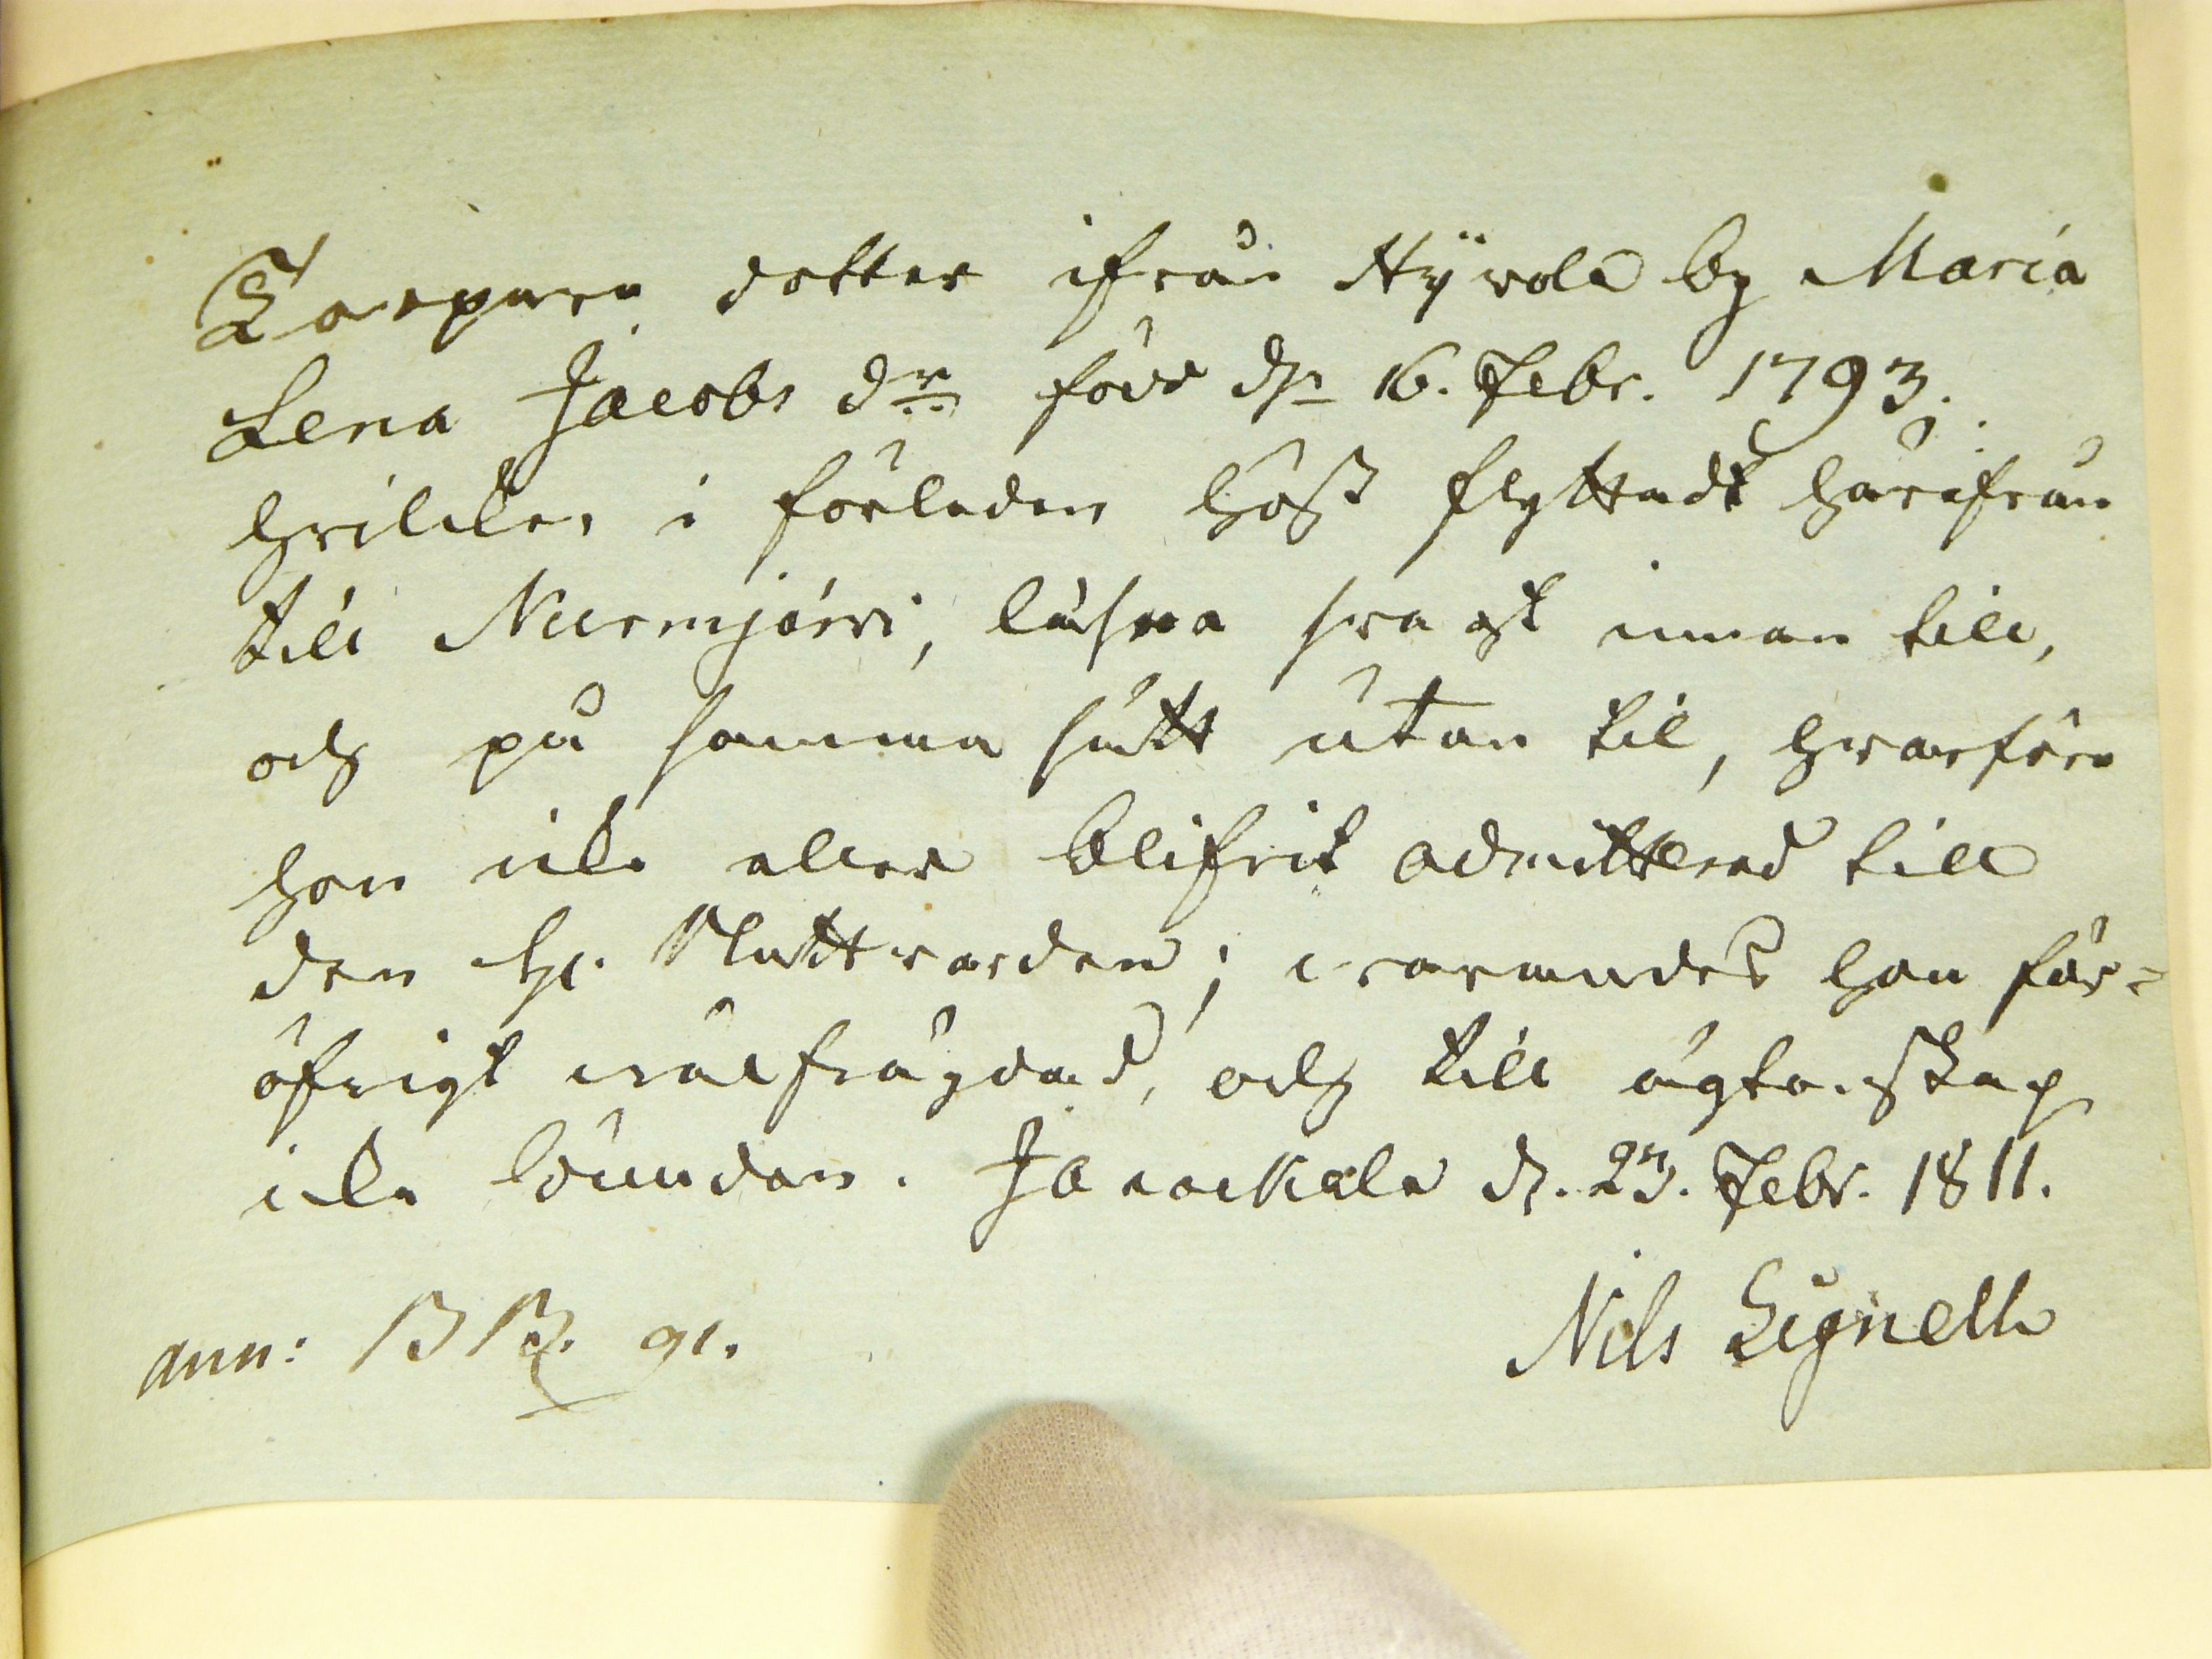 Torpare dotter ifrån Hyvola by Maria
Lena Jacobs dr född dn 16. Febr. 1793.
hvilken i förleden höst flyttadt härifrån
till Nurmjärvi, läser svagt innan till,
och på samma sätt utan til, hvarföre
hon icke eller blifvit admitterad till
den H. Nattvarden; warandes hon för=
öfrigt wälfrägdad, och till ägtenskap
icke bunden. Janackala d. 23. Febr. 1811.
Nils Lignell
ann: 91.